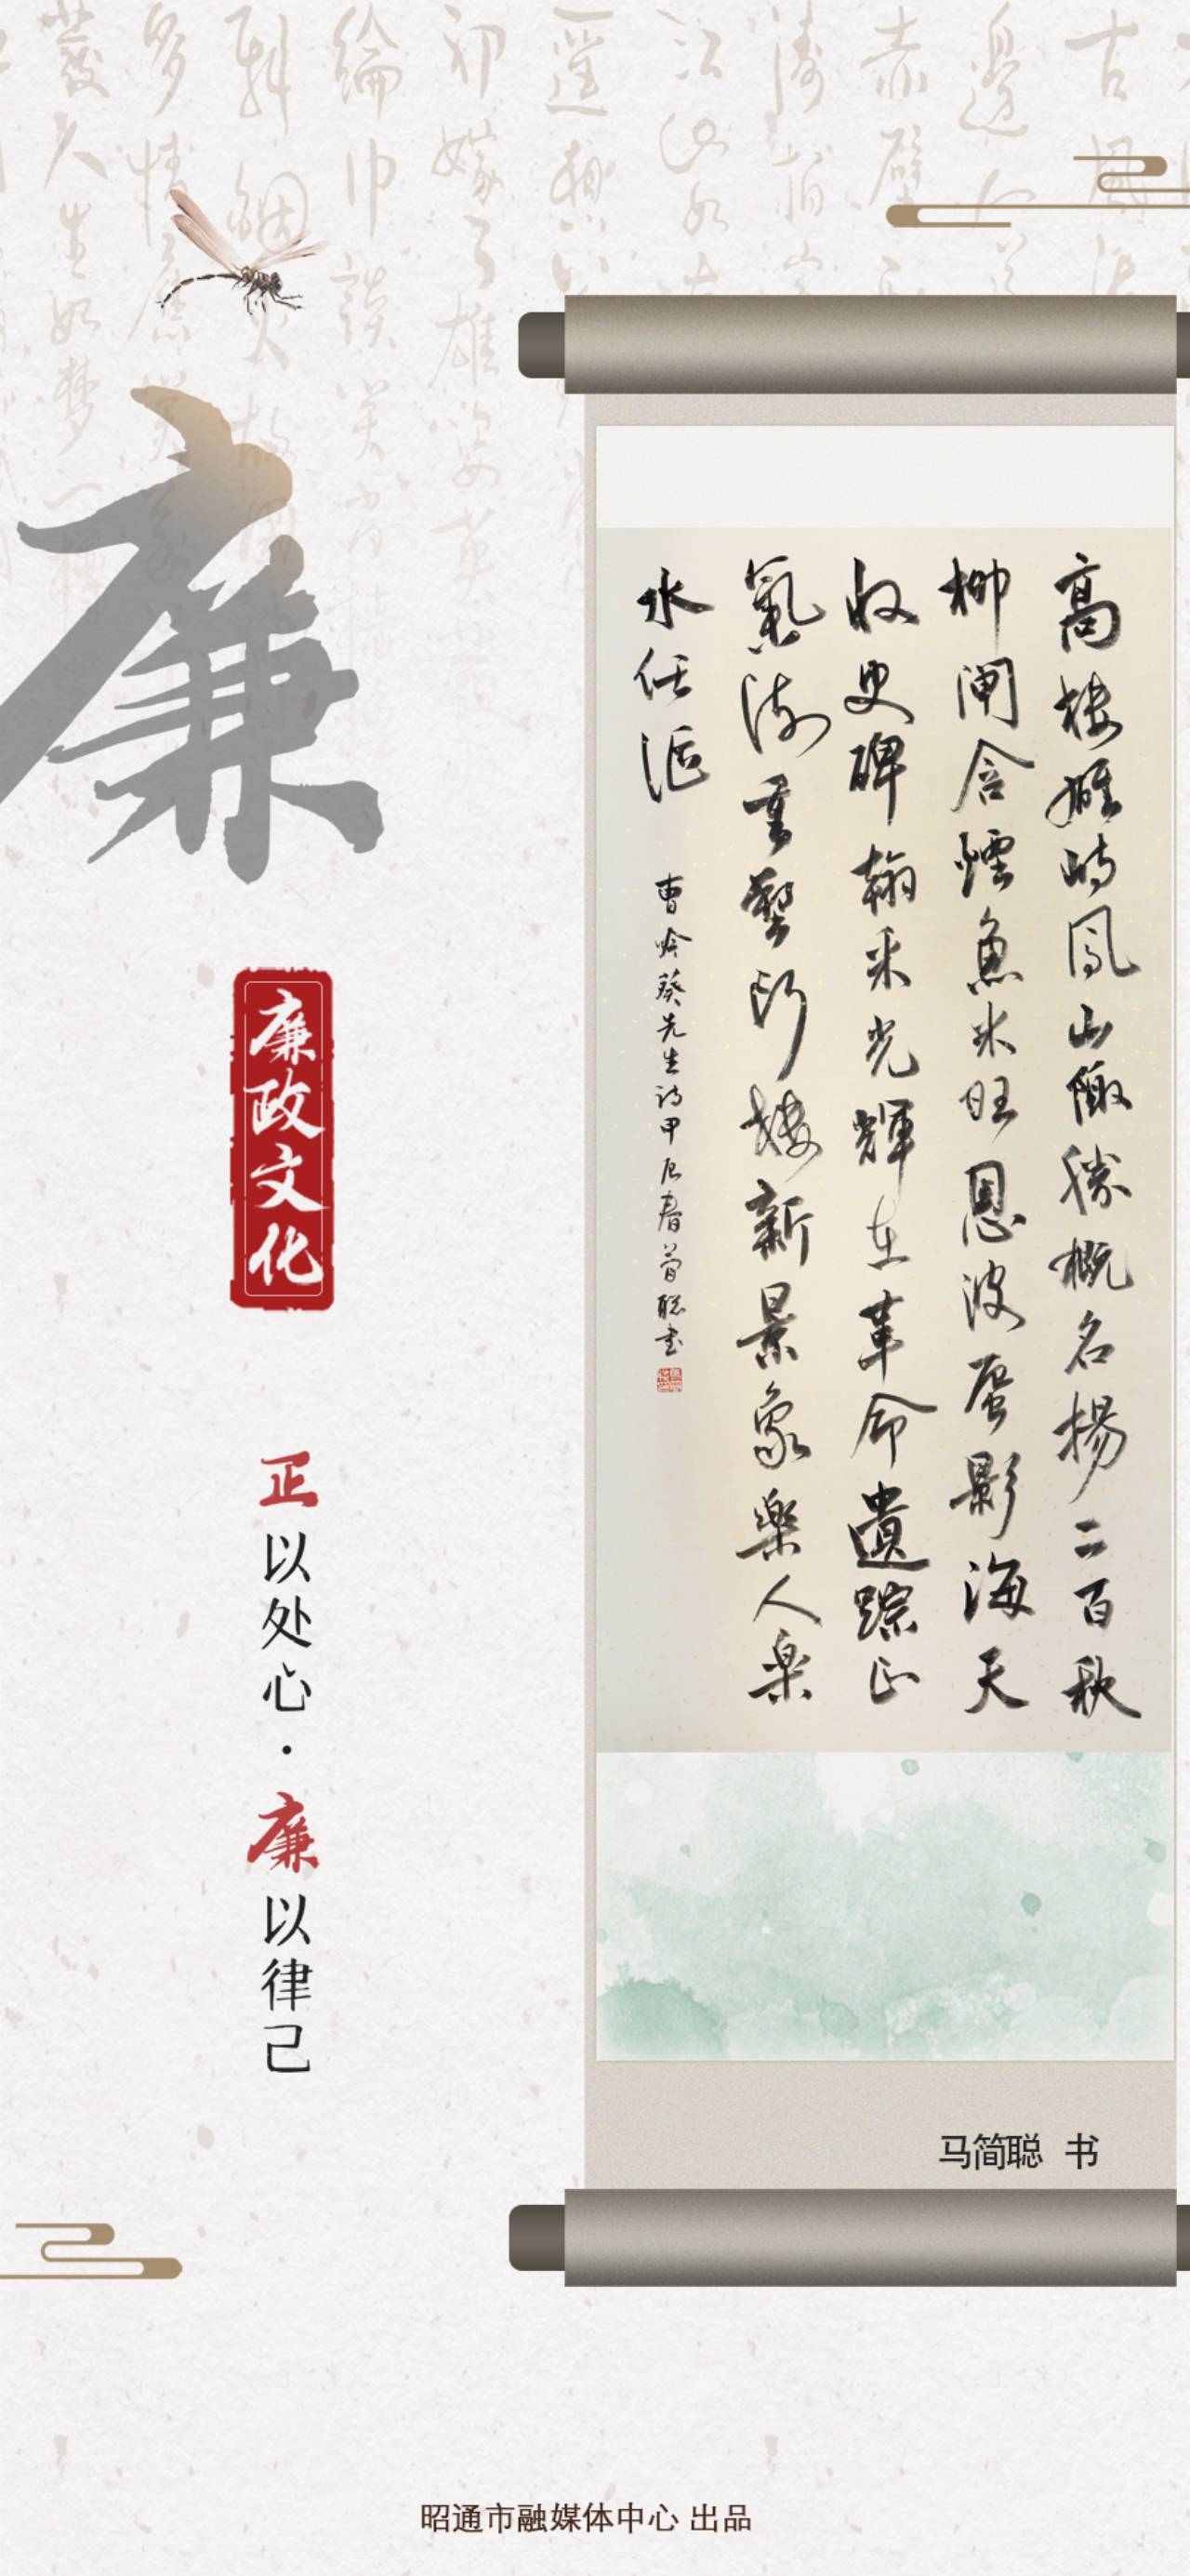 廉
廉政文化
正以处心·廉以律己
高楼雄峙凤山陬胜概名扬二百秋
柳闸含烟鱼米旺恩波蜃影海天
收史碑翰采光辉在革命遗踪正
气流重塑阶楼新景象乐人乐
水任沤
曹吟葵先生诗甲辰春简聪书
马简聪 书
昭通市融媒体中心 出品